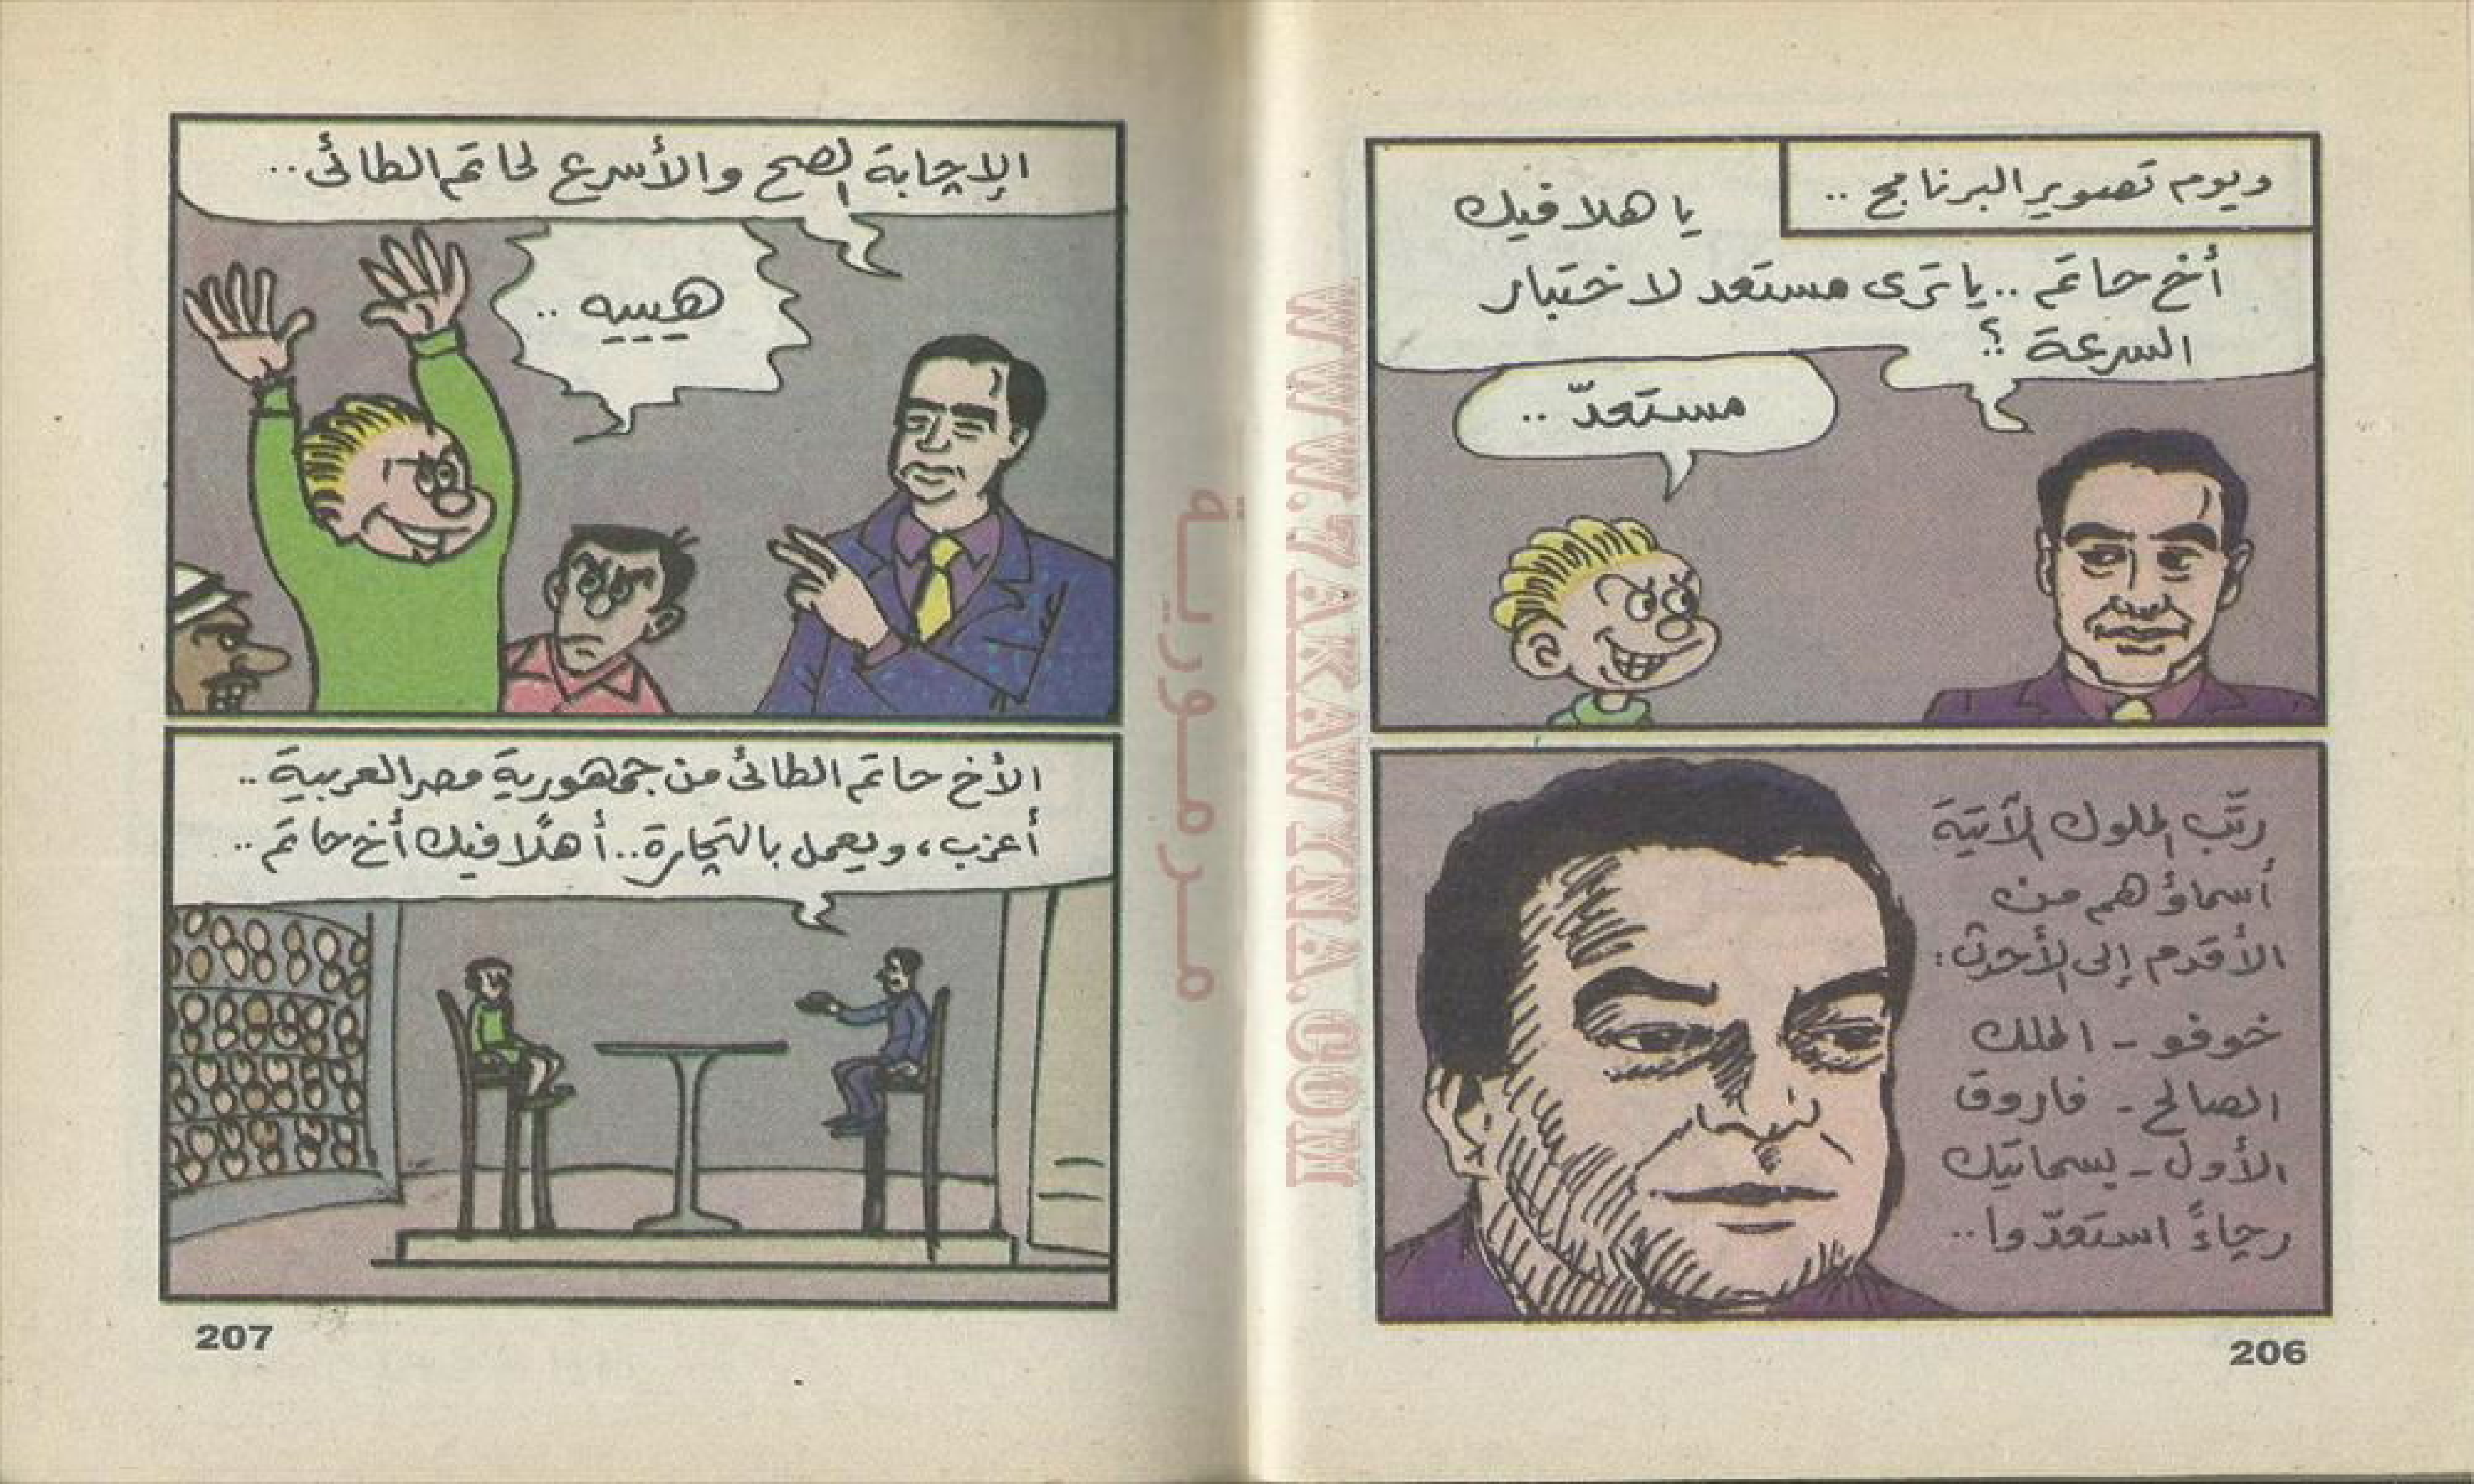 ويوم تصوير البرنامج ..
يا هلا فيك
أخ حاتم .. يا ترى مستعد لاختبار
السرعة ؟
مستعدّ ..
رتِّب الملوك الآتية
أسماؤهم من
الأقدم إلى الأحدث :
خوفو - الملك
الصالح - فاروق
الأول - بسماتيك
رجاءً استعدّوا ..
206
الإجابة الصح والأسرع لحاتم الطائى ..
هيييه ..
الأخ حاتم الطائى من جمهورية مصر العربية ..
أعزب ، ويعمل بالتجارة .. أهلًا فيك أخ حاتم ..
207
مرمورية
WWW.7AKAWINA.COM